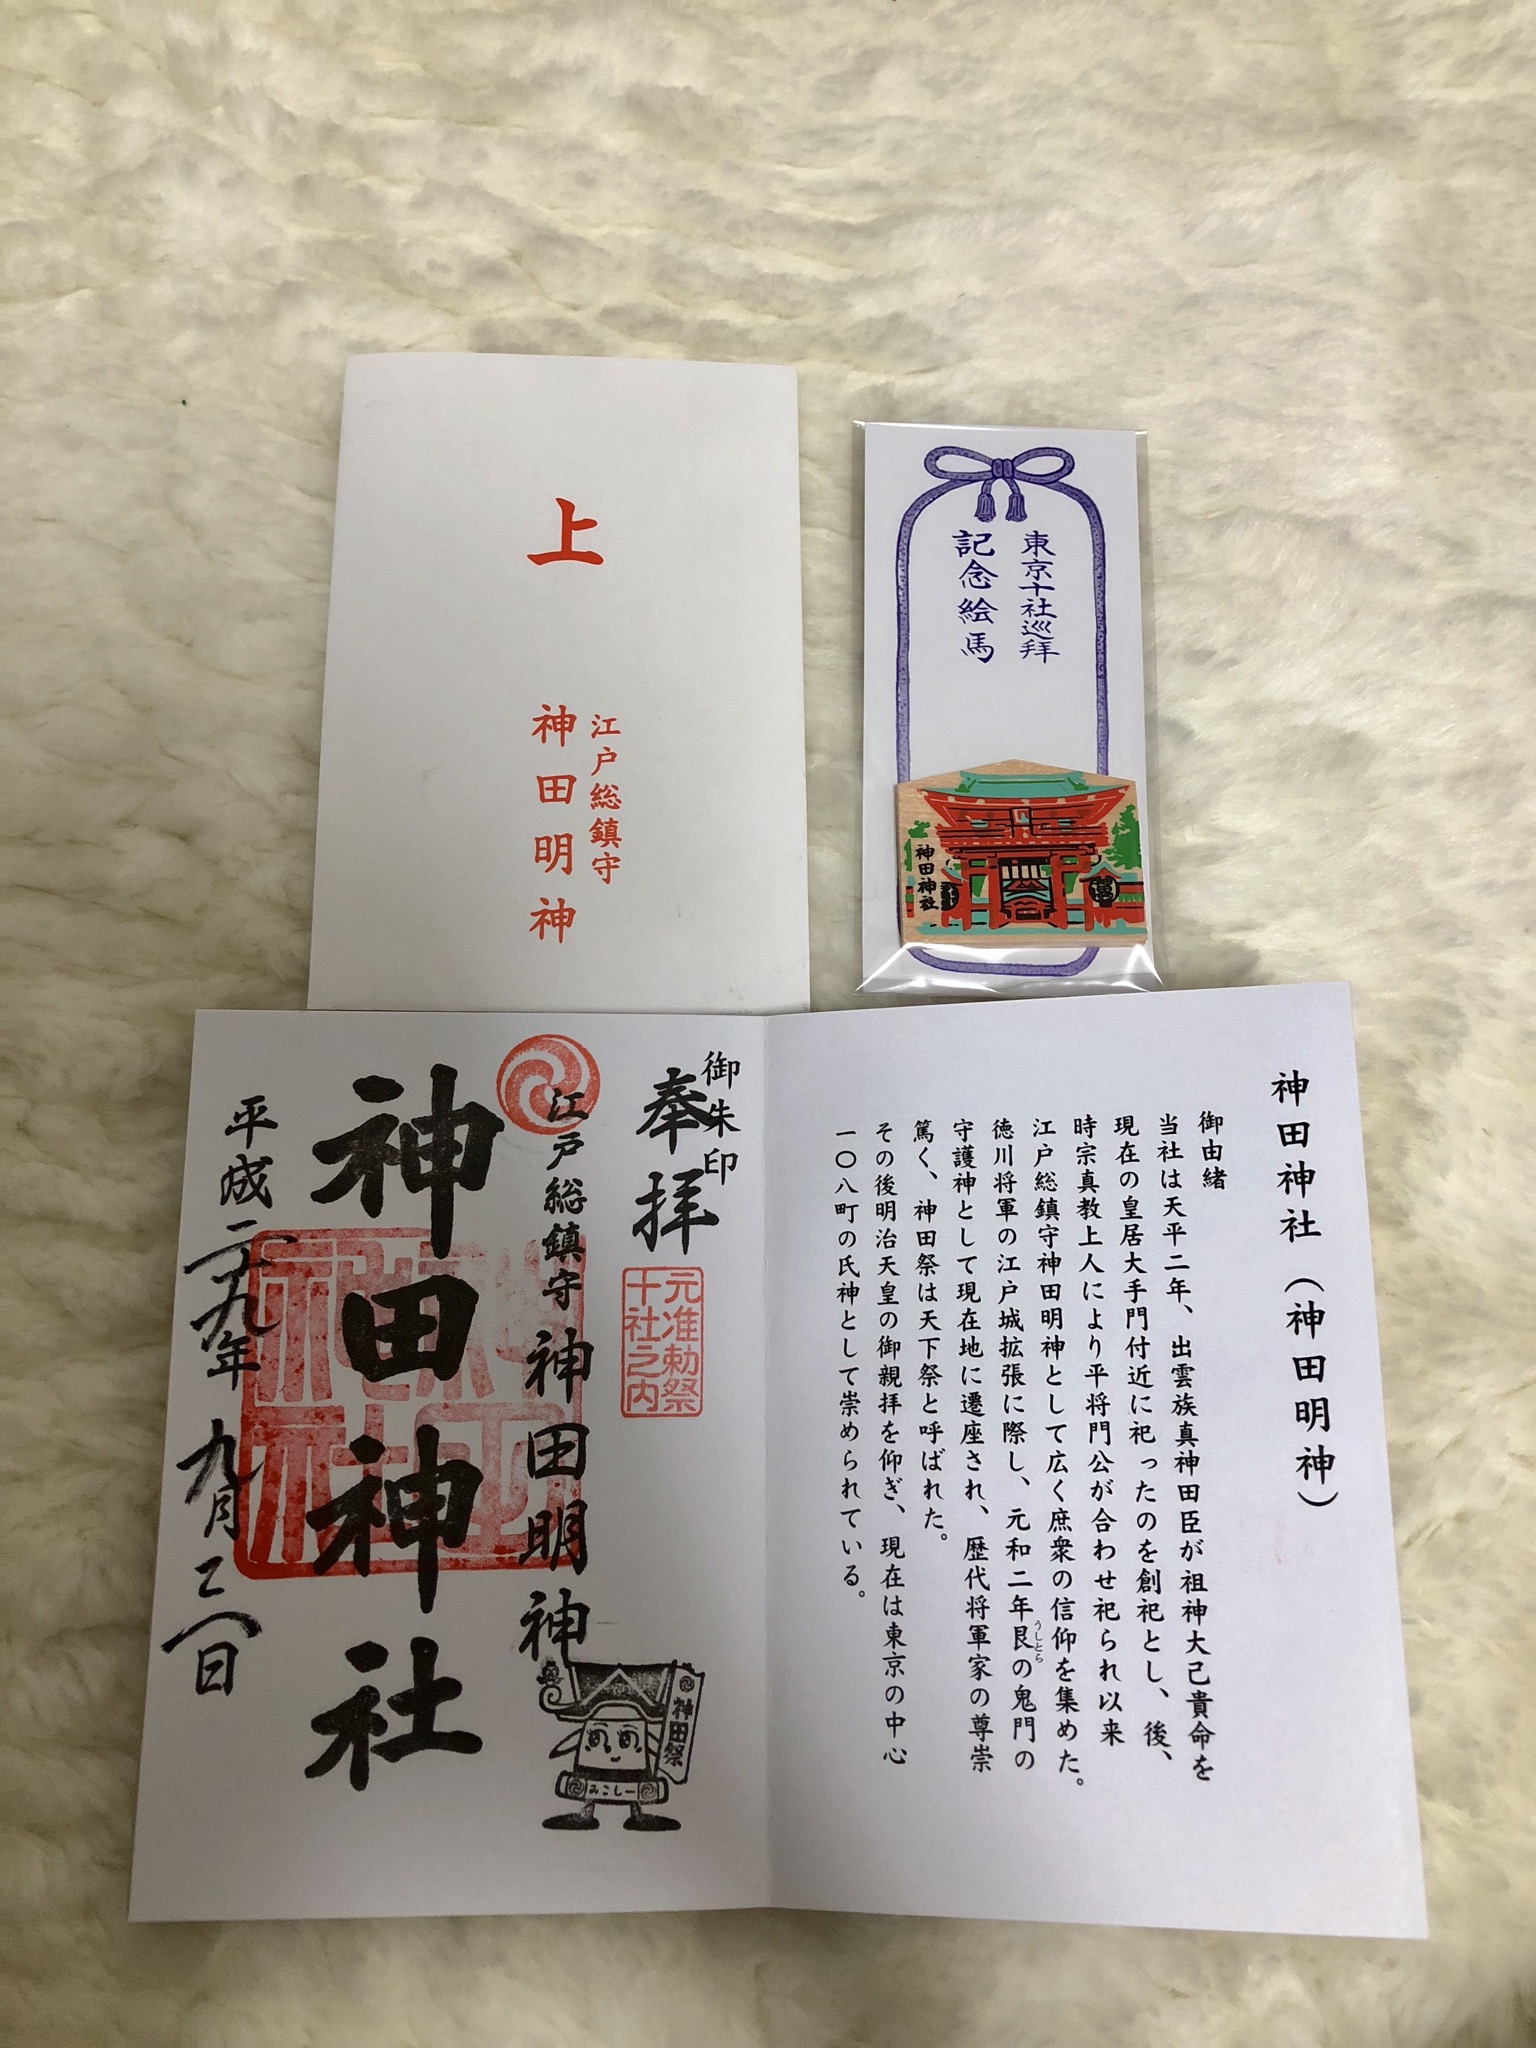 上
江戸総鎮守
神田明神
東京十社巡拜
記念絵馬
神田神社
神田神社（神田明神）
御由緒
当社は天平二年、出雲族真神田臣が祖神大己貴命を
現在の皇居大手門付近に祀ったのを創祀とし、後、
時宗真教上人により平将門公が合わせ祀られ以来
江戸総鎮守神田明神として広く庶衆の信仰を集めた。
徳川将軍の江戸城拡張に際し、元和二年艮の鬼門の
うしとら
守護神として現在地に遷座され、歴代将軍家の尊崇
篤く、神田祭は天下祭と呼ばれた。
その後明治天皇の御親拝を仰ぎ、現在は東京の中心
一〇八町の氏神として崇められている。
御朱印
奉拝
元准勅祭
十社之内
江戸総鎮守 神田明神
神田祭
みこしー
神田神社
平成二十九年九月
日